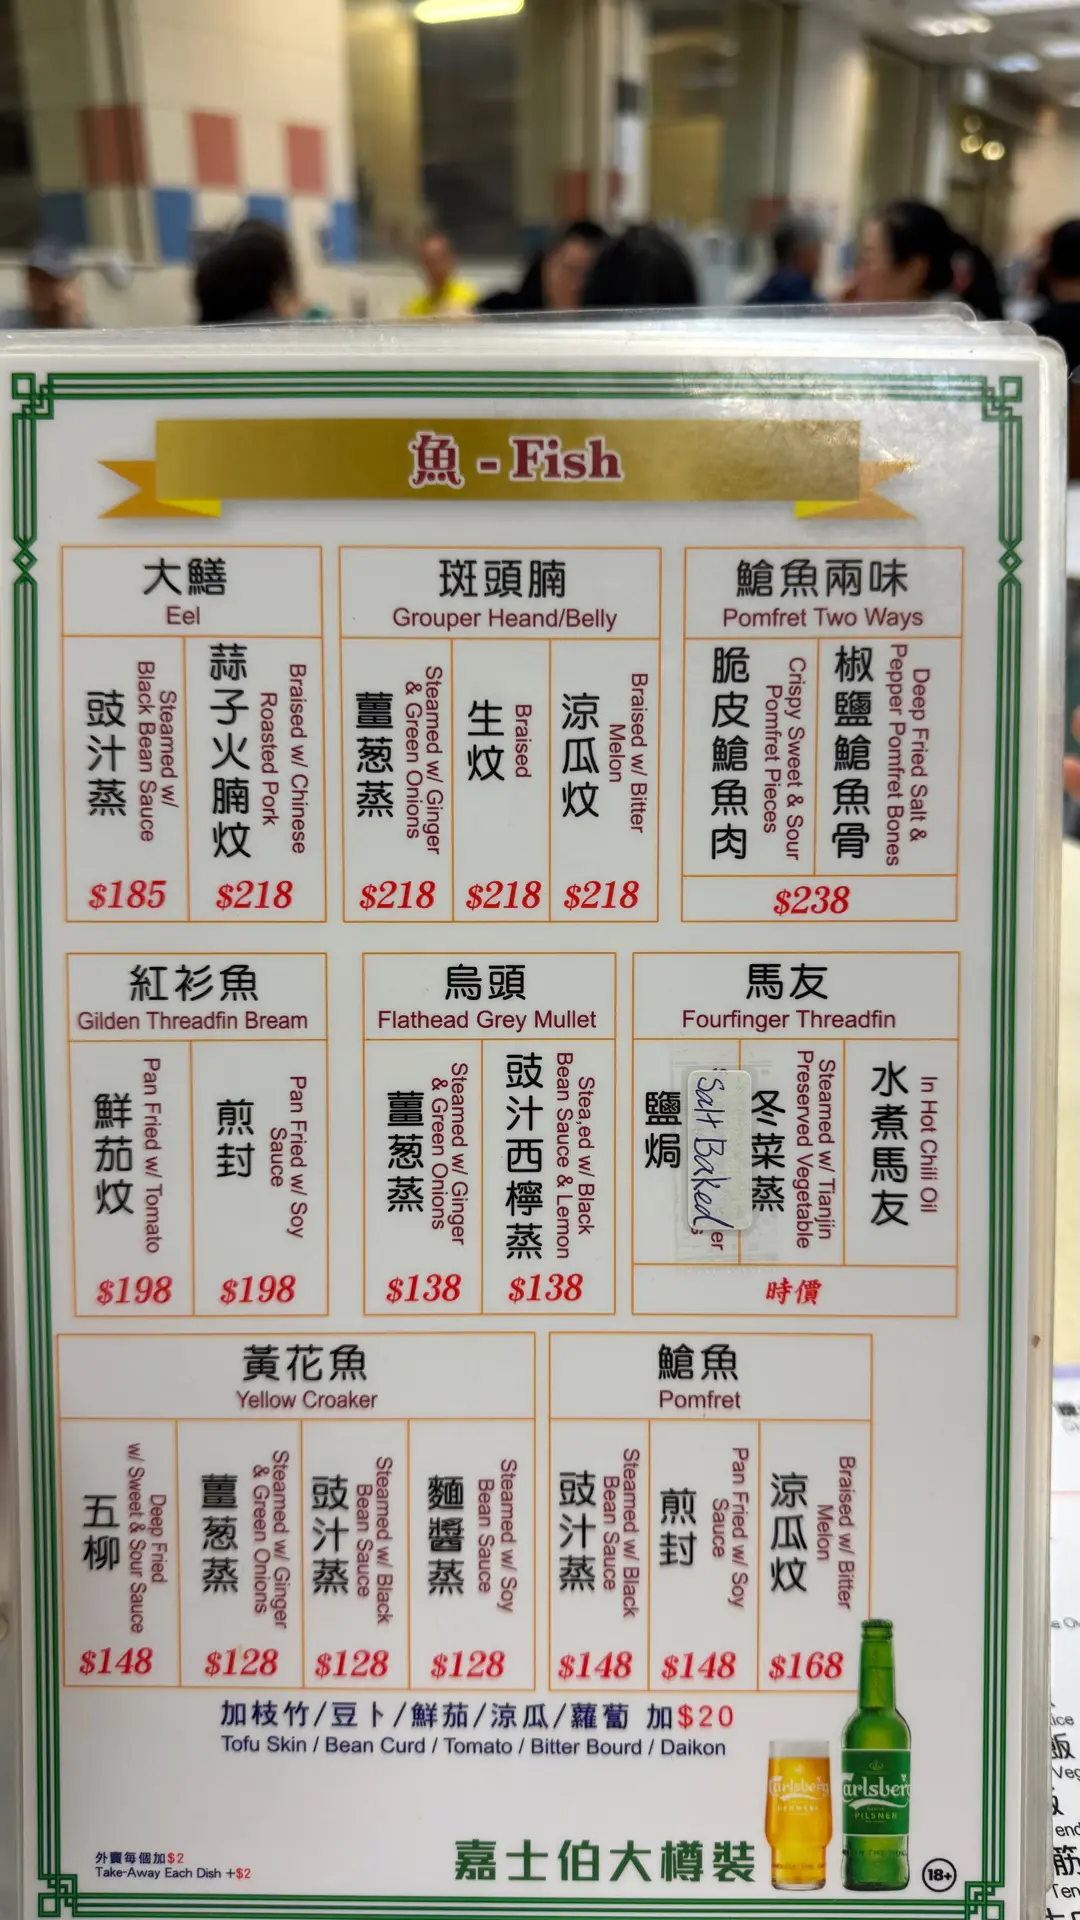 魚 - Fish
大鱔
Eel
豉汁蒸
Steamed w/
Black Bean Sauce
$185
蒜子火腩炆
Braised w/ Chinese
Roasted Pork
$218
斑頭腩
Grouper Heand/Belly
薑葱蒸
Steamed w/ Ginger
& Green Onions
$218
生炆
Braised
$218
涼瓜炆
Braised w/ Bitter
Melon
$218
鱠魚兩味
Pomfret Two Ways
脆皮鱠魚肉
Crispy Sweet & Sour
Pomfret Pieces
椒鹽鱠魚骨
Deep Fried Salt &
Pepper Pomfret Bones
$238
紅衫魚
Gilden Threadfin Bream
鮮茄炆
Pan Fried w/ Tomato
$198
煎封
Pan Fried w/ Soy
Sauce
$198
烏頭
Flathead Grey Mullet
薑葱蒸
Steamed w/ Ginger
& Green Onions
$138
豉汁西檸蒸
Stea,ed w/ Black
Bean Sauce & Lemon
$138
馬友
Fourfinger Threadfin
鹽焗
Salt Baked
er
冬菜蒸
Steamed w/ Tianjin
Preserved Vegetable
水煮馬友
In Hot Chili Oil
時價
黃花魚
Yellow Croaker
五柳
Deep Fried
w/ Sweet & Sour Sauce
$148
薑葱蒸
Steamed w/ Ginger
& Green Onions
$128
豉汁蒸
Steamed w/ Black
Bean Sauce
$128
麵醬蒸
Steamed w/ Soy
Bean Sauce
$128
鱠魚
Pomfret
豉汁蒸
Steamed w/ Black
Bean Sauce
$148
煎封
Pan Fried w/ Soy
Sauce
$148
涼瓜炆
Braised w/ Bitter
Melon
$168
加枝竹/豆卜/鮮茄/涼瓜/蘿蔔 加$20
Tofu Skin / Bean Curd / Tomato / Bitter Bourd / Daikon
外賣每個加$2
Take-Away Each Dish +$2
嘉士伯大樽裝
Carlsberg
Carlsberg
PILSNER
18+
飯
筋